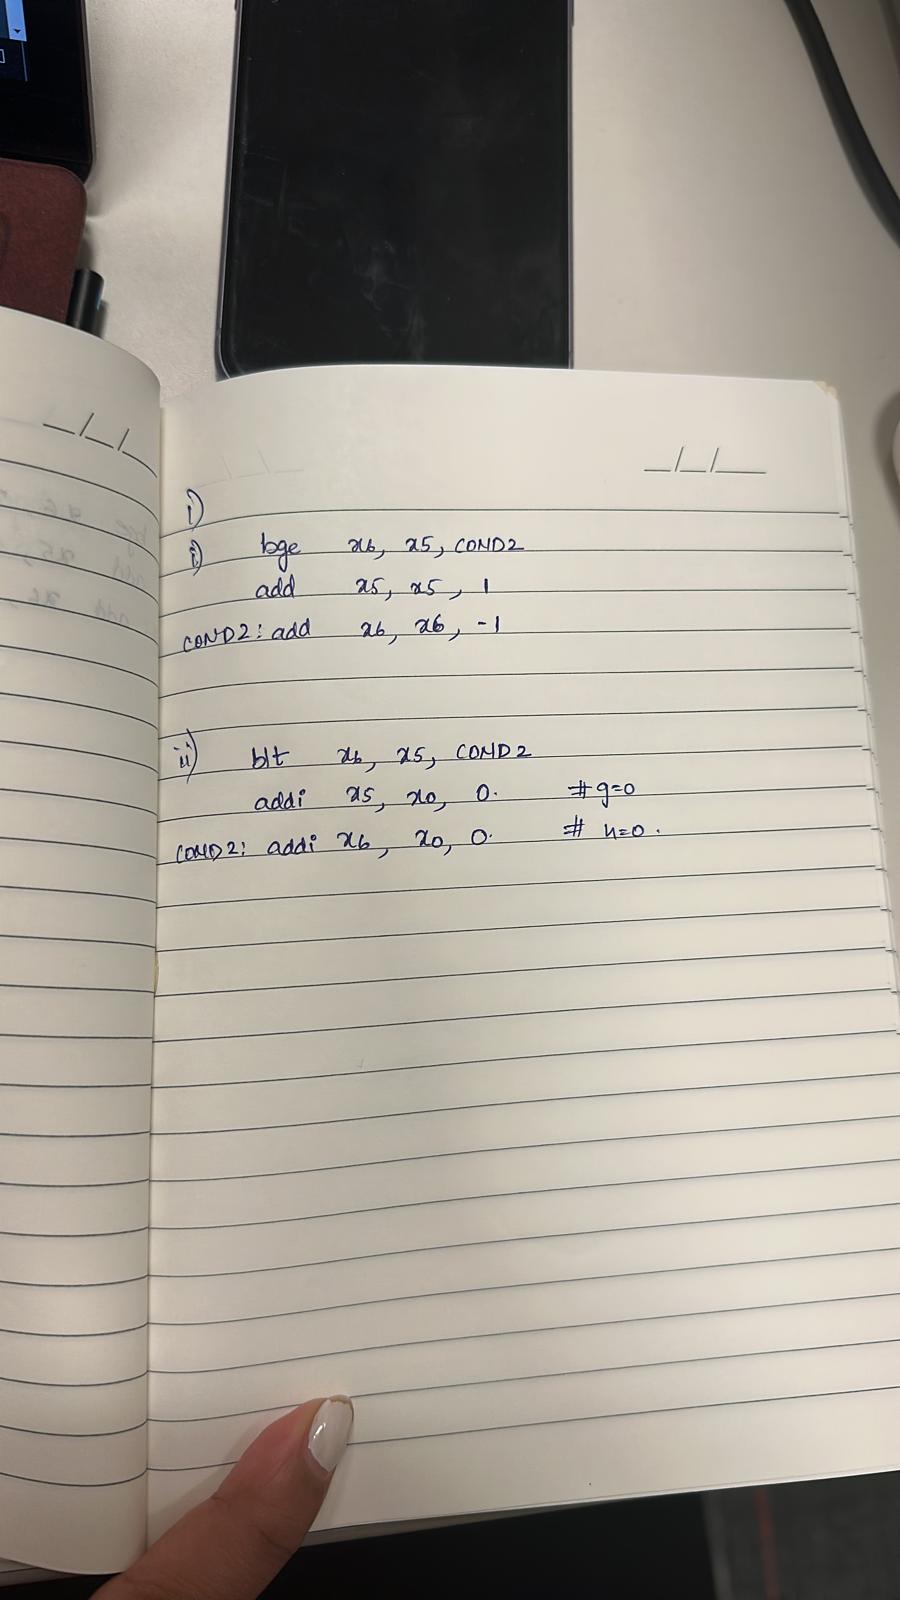 i)
i) bge x6, x5, COND2
add x5, x5, 1
COND2: add x6, x6, -1
ii) blt x6, x5, COND2
addi x5, x0, 0. # g=0
COND2: addi x6, x0, 0. # h=0.